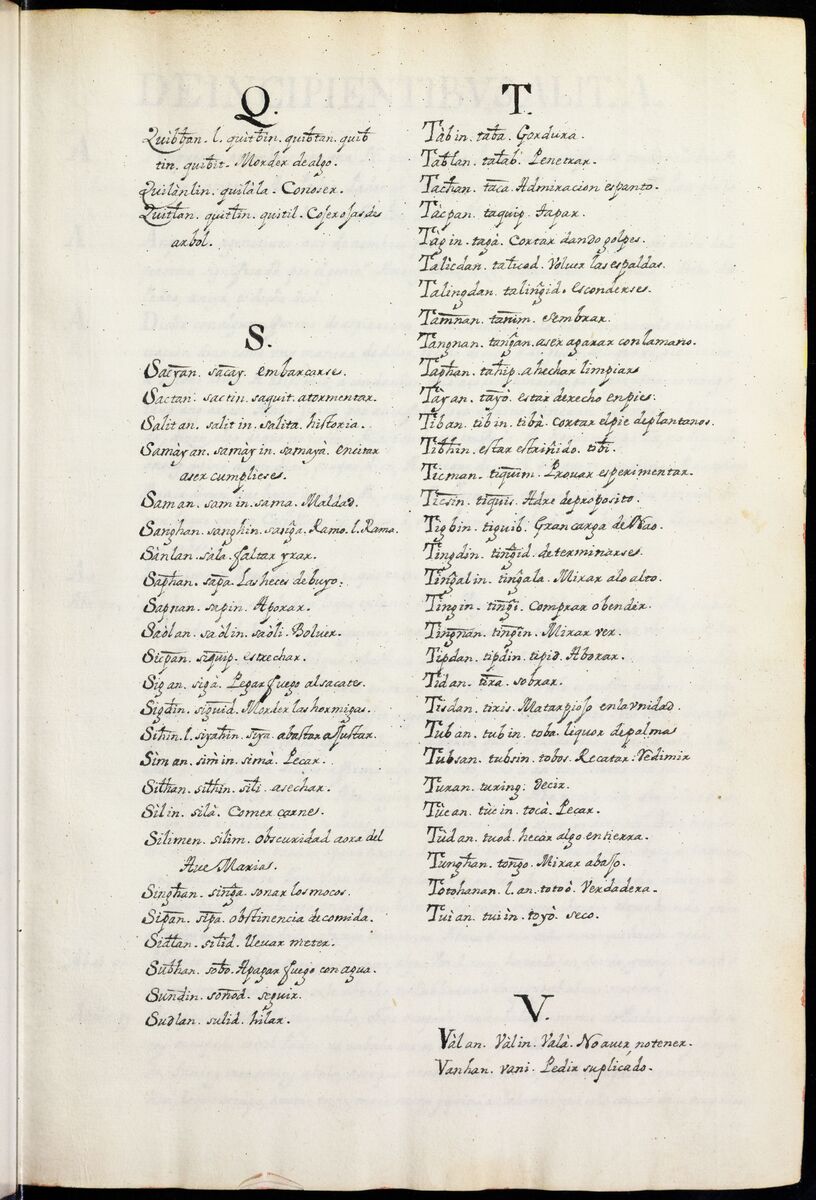 Q.
Quibtan. l. quitbin. quibtan. quib
tin. quibit. Morder de algo.
Quilànlin. quilàla. Conoser.
Quitlan. quitlin. quitil. Coser ojas des
arbol.
S.
Sacyan. sacay. embarcarse.
Sactan. sactin. saquit. atormentar.
Salitan. salitin. salita. historia.
Samàyan. samàyin. samayà. encitar
aser cumplieses.
Saman. samin. sama. Maldad.
Sanghan. sanghin. sanga. Ramo. l. Rama.
Sànlan. sàla. faltar yrar.
Saphan. sapa. Las heces de buyo.
Sapnan. sapin. Aporar.
Saòlan. saòlin. saòli. Boluer.
Sicpan. siquip. estrechar.
Sigan. sigà. Pegar fuego al sacate.
Sigdin. siguid. Morder las hormigas.
Sihin. l. siyahin. siya. abastar ajustar.
Sìman. sìmin. simà. Pecar.
Sithan. sithin. siti. asechar.
Sìlin. silà. Comer carne.
Silimen. silim. obscuridad aora del
Aue Marias.
Singhan. singa. sonar los mocos.
Sipan. sipa. obstinencia de comida.
Sidlan. silid. lleuar meter.
Subhan. sobo. Apagar fuego con agua.
Sundin. sonod. seguir.
Sudlan. sulid. hilar.
T.
Tàbin. taba. Gordura.
Tablan. talab. Penetrar.
Tachan. taca. Admiracion espanto.
Tàcpan. taquip. tapar.
Tàgin. tagà. cortar dando golpes.
Talìcdan. talicod. Voluer las espaldas.
Talingdan. talin͠gid. esconderses.
Tamnan. tanim. sembrar.
Tangnan. tangan. aser agarar con la mano.
Taphan. tahip. ahechar limpiar
Tàyan. tayò. estar derecho en pies.
Tìban. tibin. tibà. cortar el pie de plantanos.
Tibhin. estar estriñido. tibi.
Ticman. tiquim. Prouar esperimentar.
Ticsin. tiquis. Adre de proposito.
Tìgbin. tiguib. Gran carga de Nao.
Tingdin. tin͠gid. determinarses.
Tin͠galin. tin͠gala. Mirar alo alto.
Tingin. tingi. Comprar o bender.
Tingnan. tingin. Mirar ver.
Tipdan. tipdin. tipid. Ahorar.
Tidan. tira. sobrar.
Tisdan. tiris. Matar piojo en la vnidad.
Tuban. tubin. toba. liquor de palma
Tubsan. tubsin. tobos. Recatar: Redimir
Turan. turing. decir.
Tùcan. tùcin. tocà. Pecar.
Tùdan. tuod. hecar algo en tierra.
Tunghan. tongo. Mirar abajo.
Totohanan. l. an. totoò. Verdadera.
Tuìan. tuiin. toyò. seco.
V.
Vàlan. Vàlin. Valà. No auer no tener.
Vanhan. vani. Pedir suplicado.